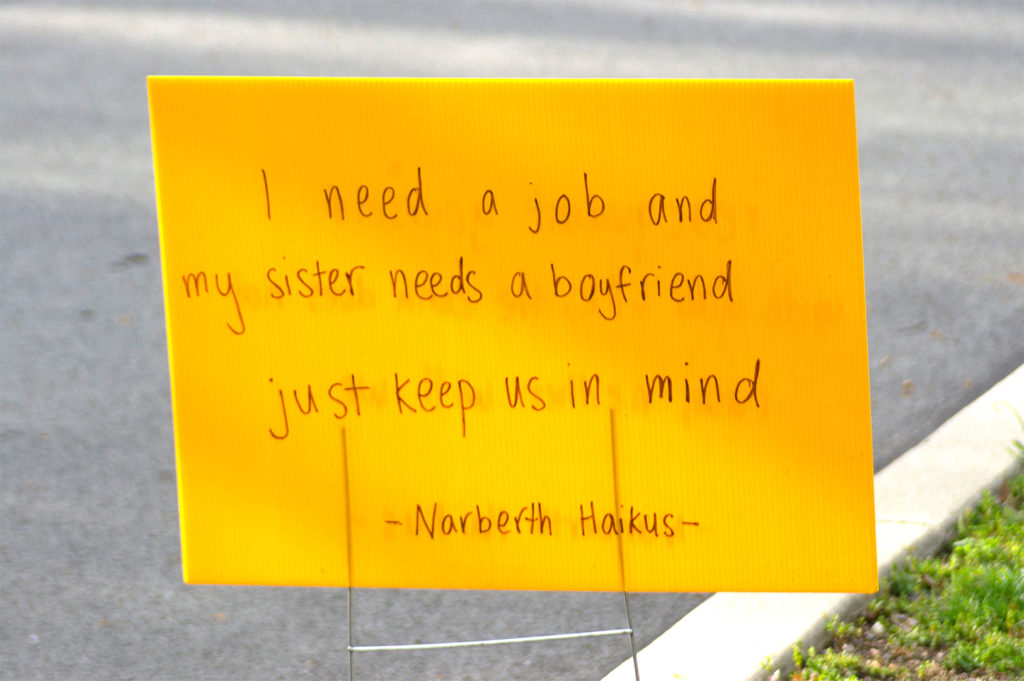 I need a job and
my sister needs a boyfriend
just keep us in mind
- Narberth Haikus -